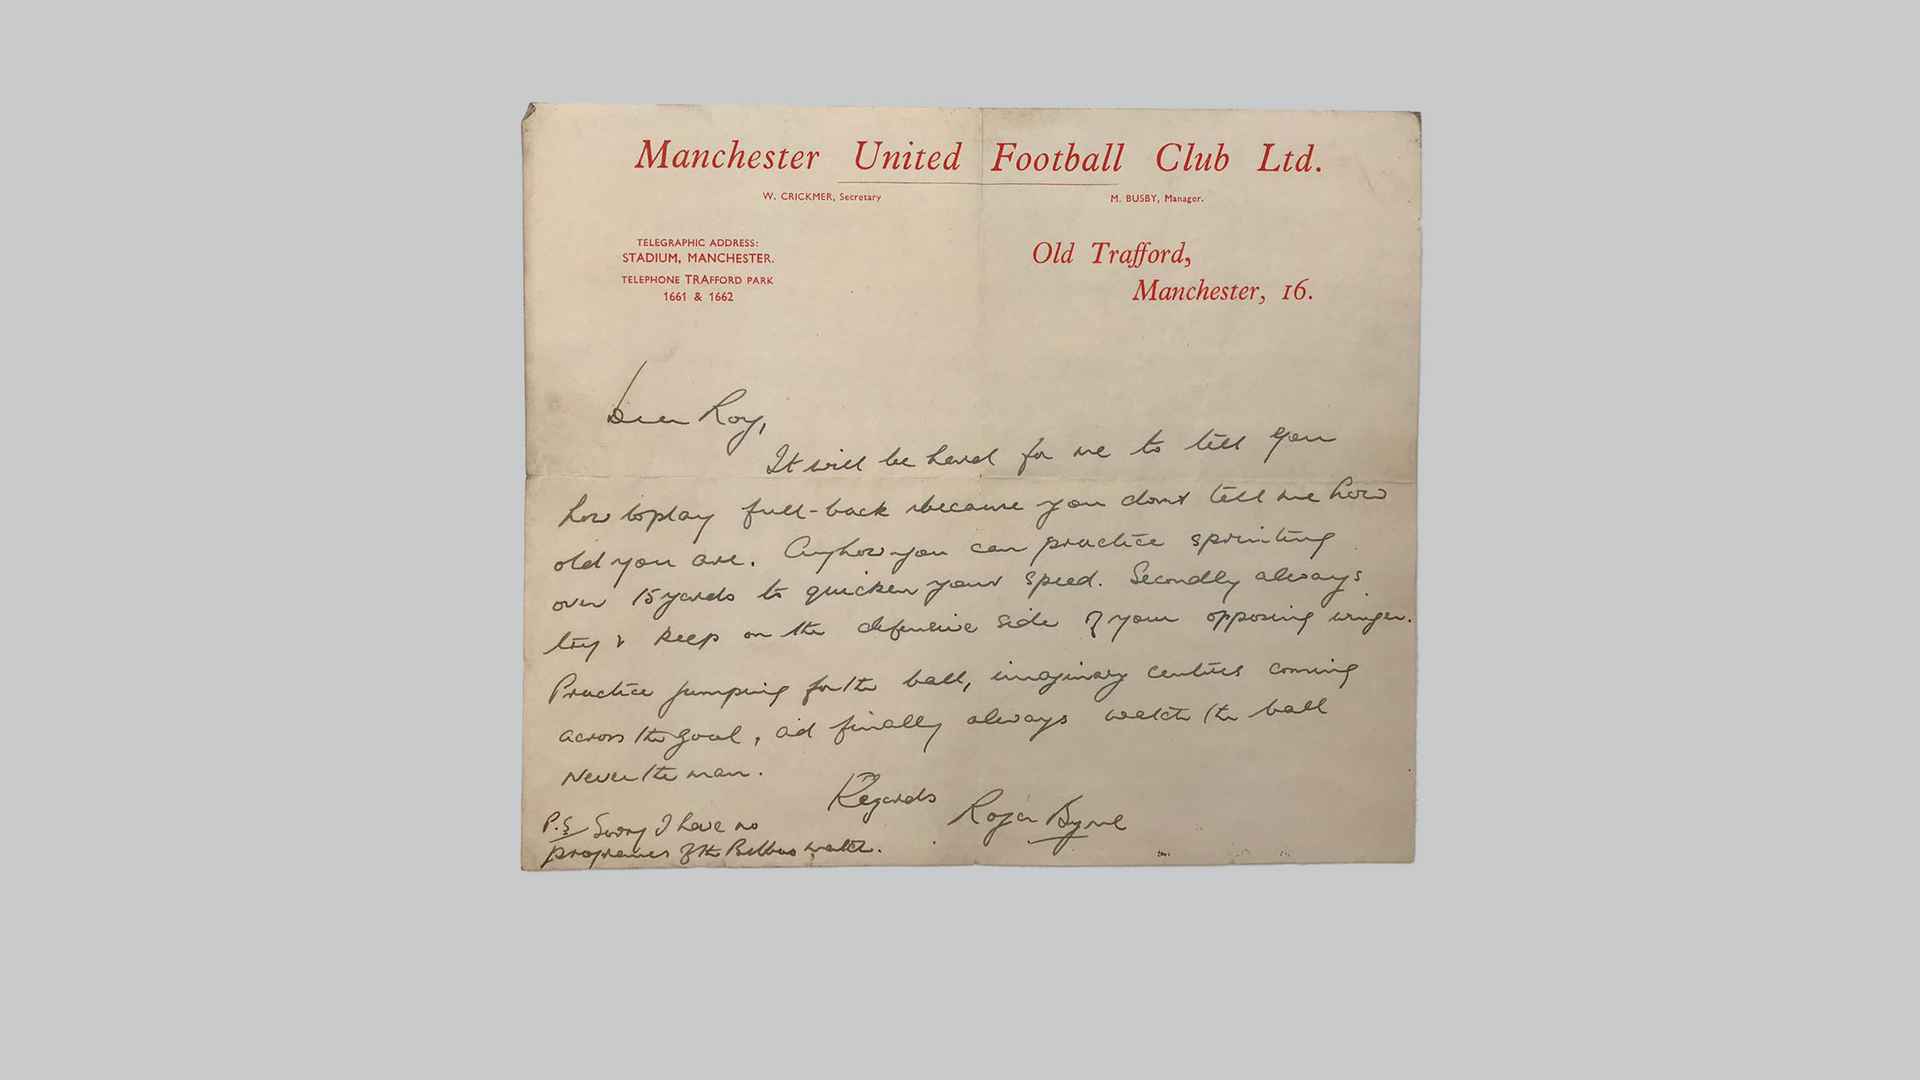 Manchester United Football Club Ltd.
W. CRICKMER, Secretary
M. BUSBY, Manager.
TELEGRAPHIC ADDRESS:
STADIUM, MANCHESTER.
TELEPHONE TRAFFORD PARK
1661 & 1662
Old Trafford,
Manchester, 16.
Dear Roy,
It will be hard for me to tell you
how to play full-back because you dont tell me how
old you are. Anyhow you can practice sprinting
over 15 yards to quicken your speed. Secondly always
try & keep on the defensive side of your opposing winger.
Practice jumping for the ball, imaginary centres coming
across the goal, ad finally always watch the ball
never the man.
Regards Roger Byrne
P.S Sorry I have no
programes of the Bilbao match.